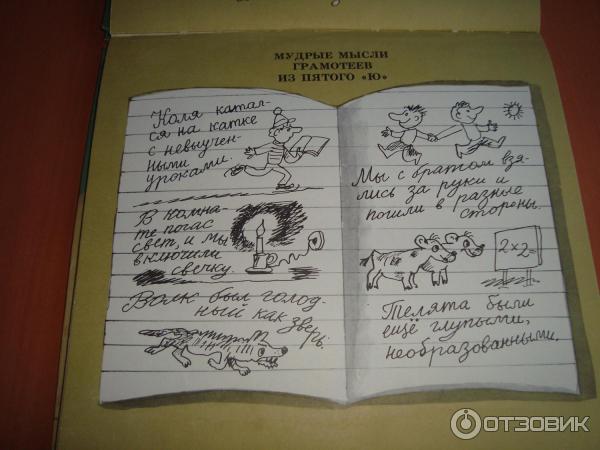 МУДРЫЕ МЫСЛИ
ГРАМОТЕЕВ
ИЗ ПЯТОГО «Ю»
Коля катал-
ся на катке
с невыучен-
ными
уроками.
В комна-
те погас
свет, и мы
включили
свечку.
Волк был голод-
ный как зверь.
Мы с братом взя-
лись за руки и
пошли в разные
стороны.
2×2=
Телята были
ещё глупыми,
необразованными.
ОТЗОВИК